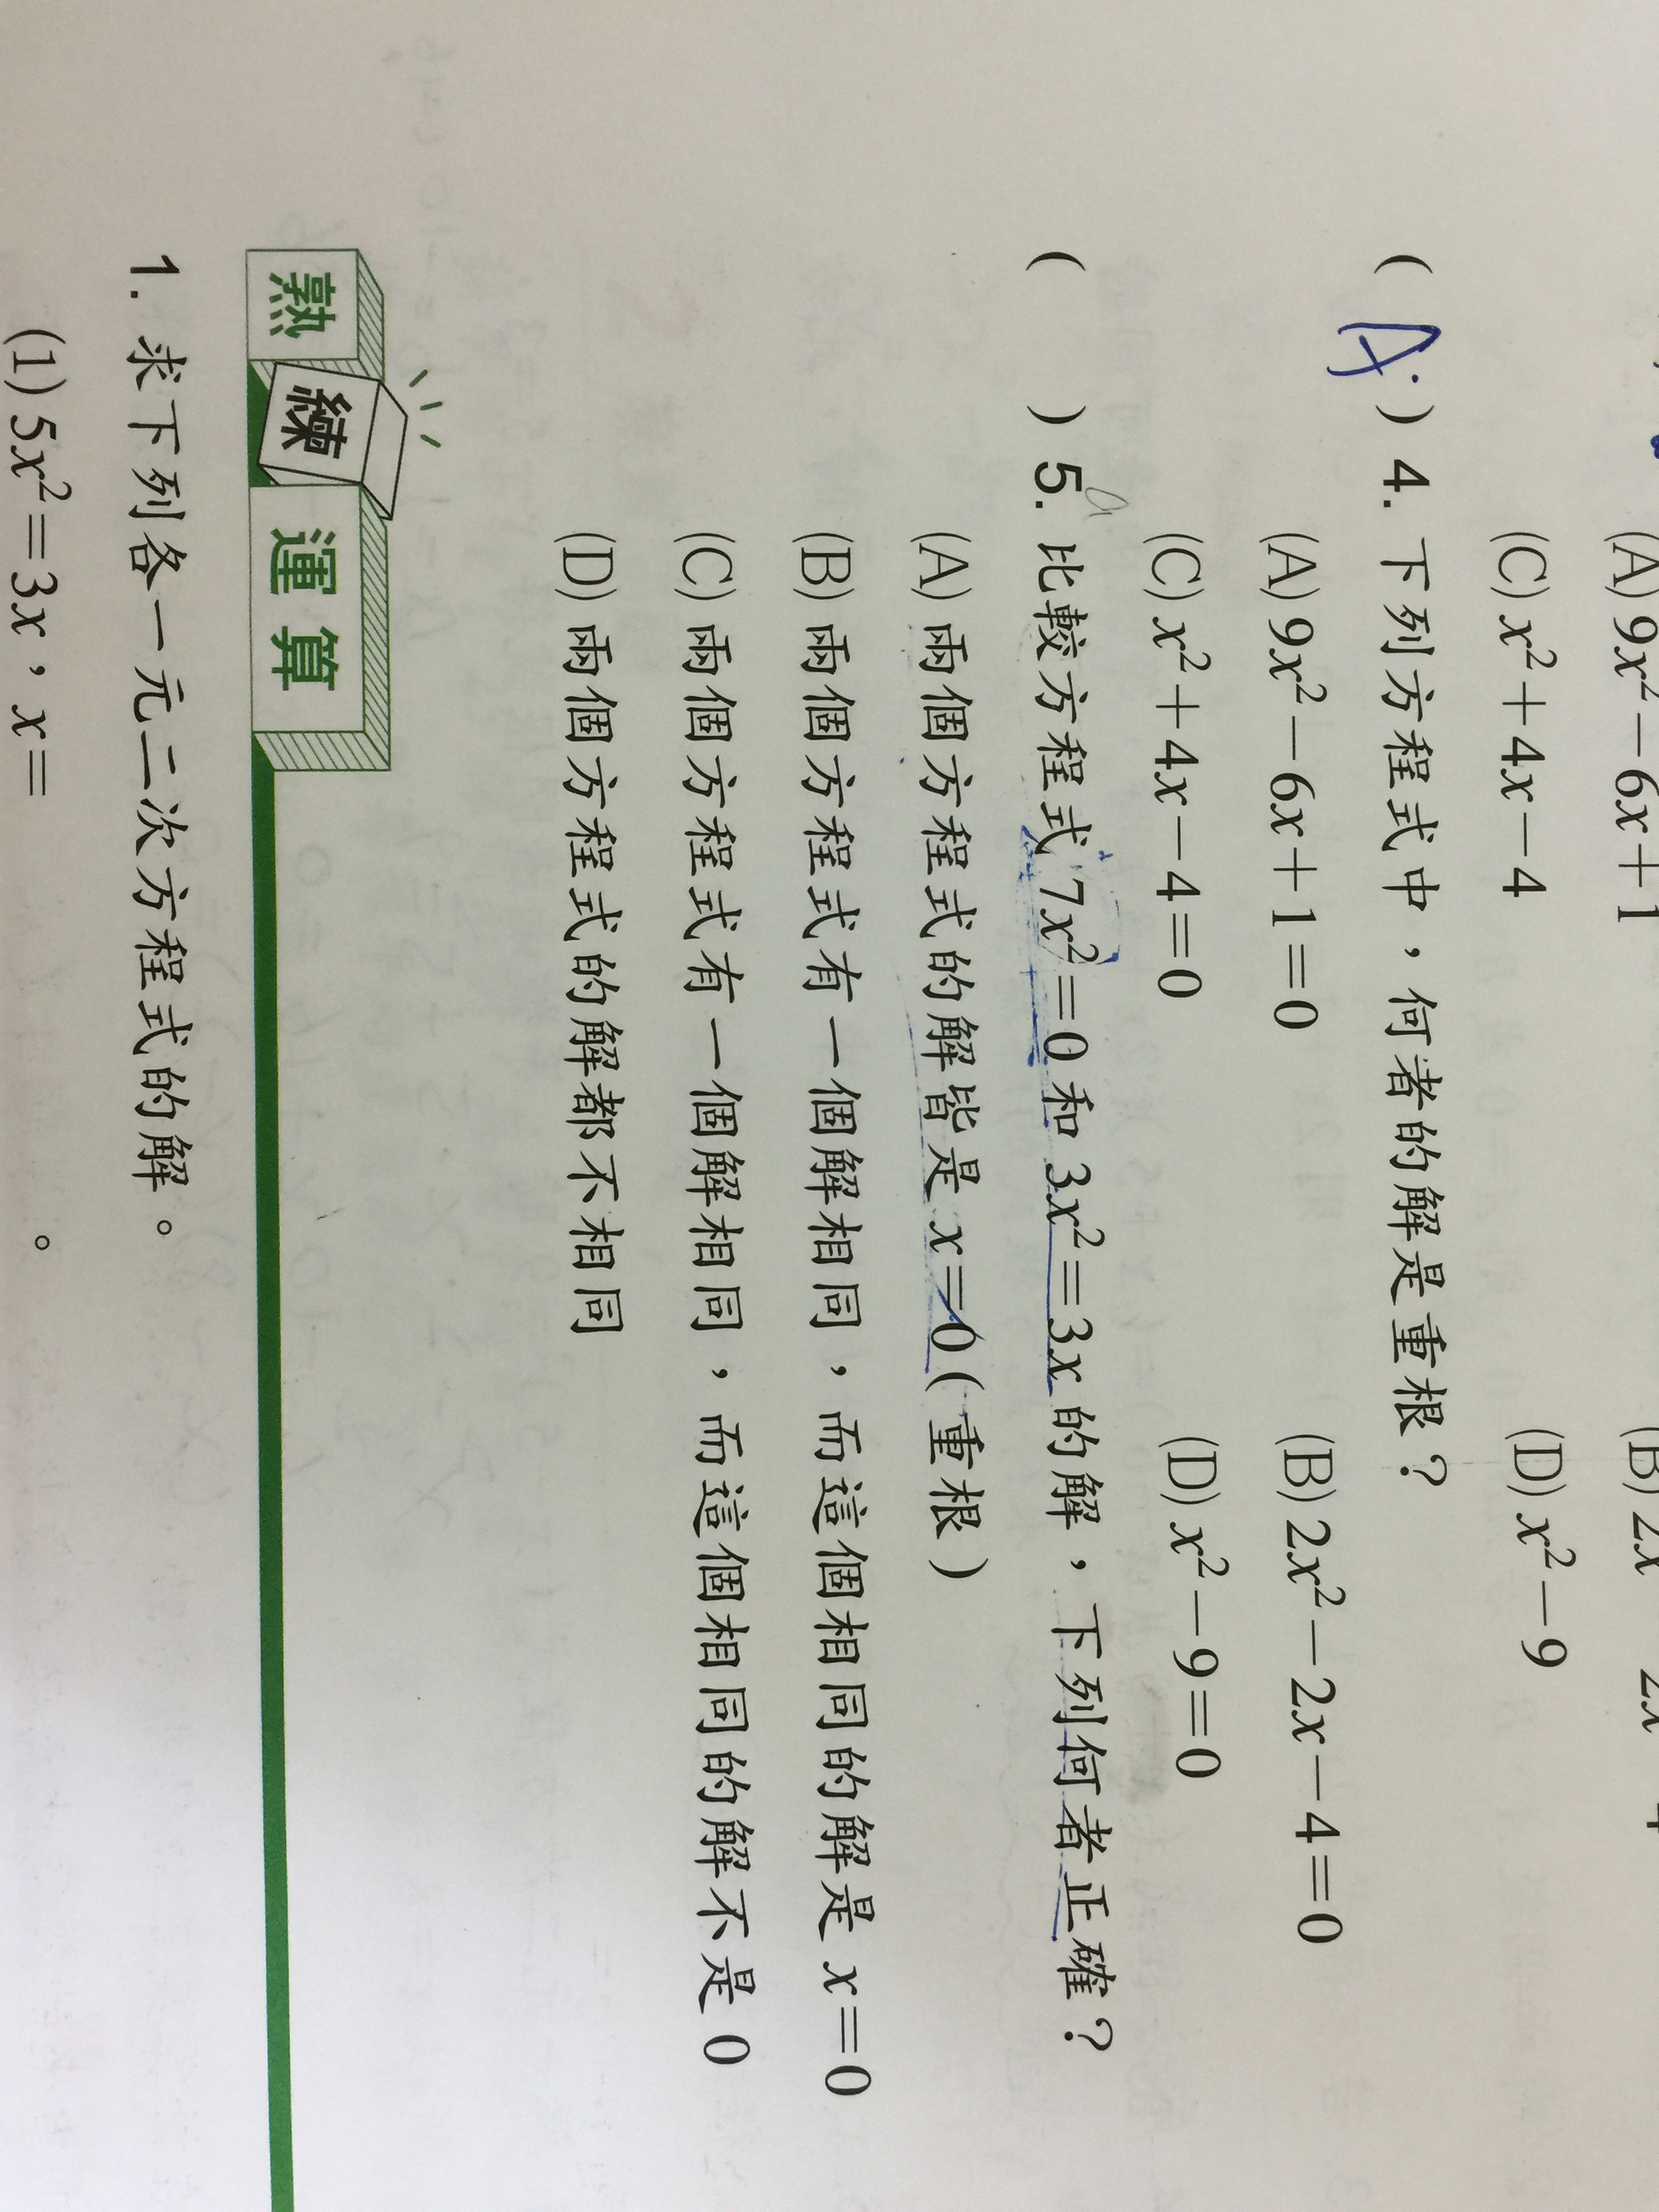 (A) 9x²－6x＋1
(B) 2x
(C) x²＋4x－4
(D) x²－9
( A ) 4. 下列方程式中，何者的解是重根？
(A) 9x²－6x＋1＝0
(B) 2x²－2x－4＝0
(C) x²＋4x－4＝0
(D) x²－9＝0
( ) 5. 比較方程式 7x²＝0 和 3x²＝3x 的解，下列何者正確？
(A) 兩個方程式的解皆是 x＝0 (重根)
(B) 兩個方程式有一個解相同，而這個相同的解是 x＝0
(C) 兩個方程式有一個解相同，而這個相同的解不是 0
(D) 兩個方程式的解都不相同
熟練運算
1. 求下列各一元二次方程式的解。
(1) 5x²＝3x，x＝ 。